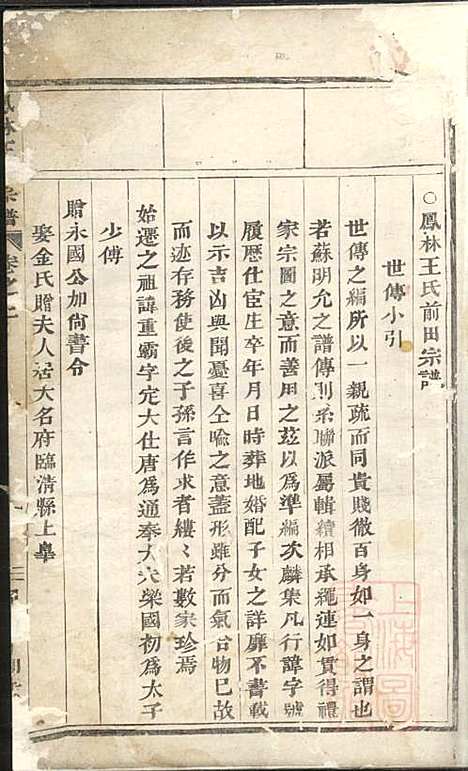 ○鳳林王氏前田宗譜
世傳小引
世傳之編所以一親疏而同貴賤徹百身如一身之謂也
若蘇明允之譜傳則系聯派屬輯續相承繩連如貫得禮
家宗圖之意而善用之茲以為準編次麟集凡行諱字號
履歷仕宦生卒年月日時葬地婚配子女之詳靡不書載
以示吉凶與聞憂喜仝喻之意蓋形雖分而氣合物已故
而迹存務使後之子孫言作求者縷〻若數家珍焉
始遷之祖諱重霸字定大仕唐為通奉大夫梁國初為太子
少傅
贈永國公加尚書令
娶金氏贈夫人居大名府臨清縣上
宗譜
卷之